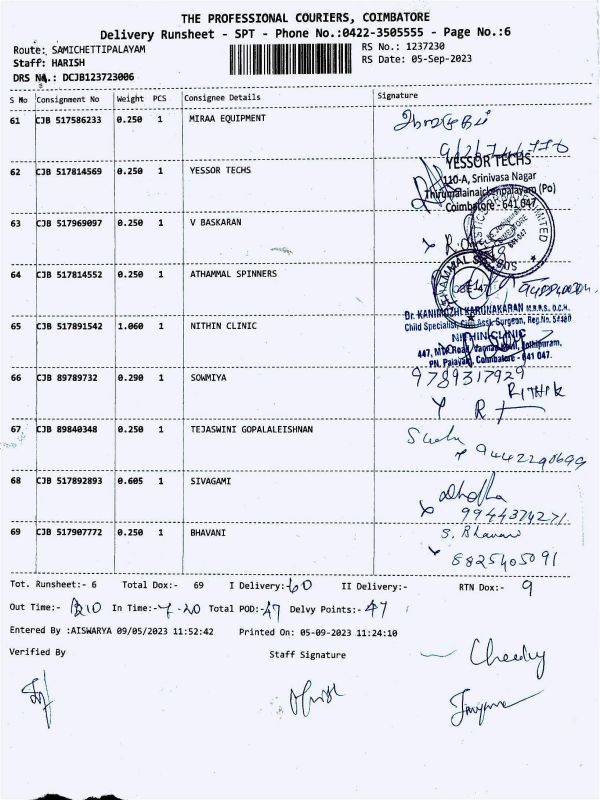 THE PROFESSIONAL COURIERS, COIMBATORE
Delivery Runsheet - SPT - Phone No.:0422-3505555 - Page No.:6
Route: SAMICHETTIPALAYAM RS No.: 1237230
Staff: HARISH RS Date: 05-Sep-2023
DRS No.: DCJB123723006
S No Consignment No Weight PCS Consignee Details Signature
61 CJB 517586233 0.250 1 MIRAA EQUIPMENT
62 CJB 517814569 0.250 1 YESSOR TECHS
YESSOR TECHS
110-A, Srinivasa Nagar
Thirumalainaickenpalayam (Po)
Coimbatore - 641 047.
63 CJB 517969097 0.250 1 V BASKARAN
64 CJB 517814552 0.250 1 ATHAMMAL SPINNERS
65 CJB 517891542 1.060 1 NITHIN CLINIC
Dr. KANIMOZHI KARUNAKARAN M.B.B.S., D.C.H.
Child Specialist, Asst. Surgeon, Reg.No.
NITHIN CLINIC
PN. Palayam, Coimbatore - 641 047.
66 CJB 89789732 0.290 1 SOWMIYA
9789317929
RITHIK
67 CJB 89840348 0.250 1 TEJASWINI GOPALALEISHNAN
9442290699
68 CJB 517892893 0.605 1 SIVAGAMI
9944374271
69 CJB 517907772 0.250 1 BHAVANI
S. Bhavani
8825405091
Tot. Runsheet:- 6 Total Dox:- 69 I Delivery:- 60 II Delivery:- RTN Dox:- 9
Out Time:- In Time:- 7-20 Total POD:- 47 Delvy Points:- 47
Entered By :AISWARYA 09/05/2023 11:52:42 Printed On: 05-09-2023 11:24:10
Verified By Staff Signature